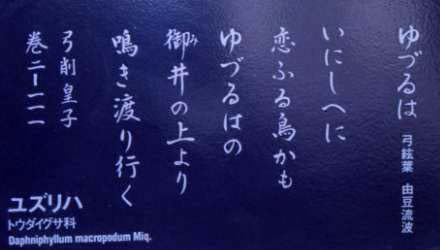 ゆづるは 弓絃葉 由豆流波
いにしへに
恋ふる鳥かも
ゆづるはの
御井の上より
み
鳴き渡り行く
弓削皇子
巻二ー一一一
ユズリハ
トウダイグサ科
Daphniphyllum macropodum Miq.